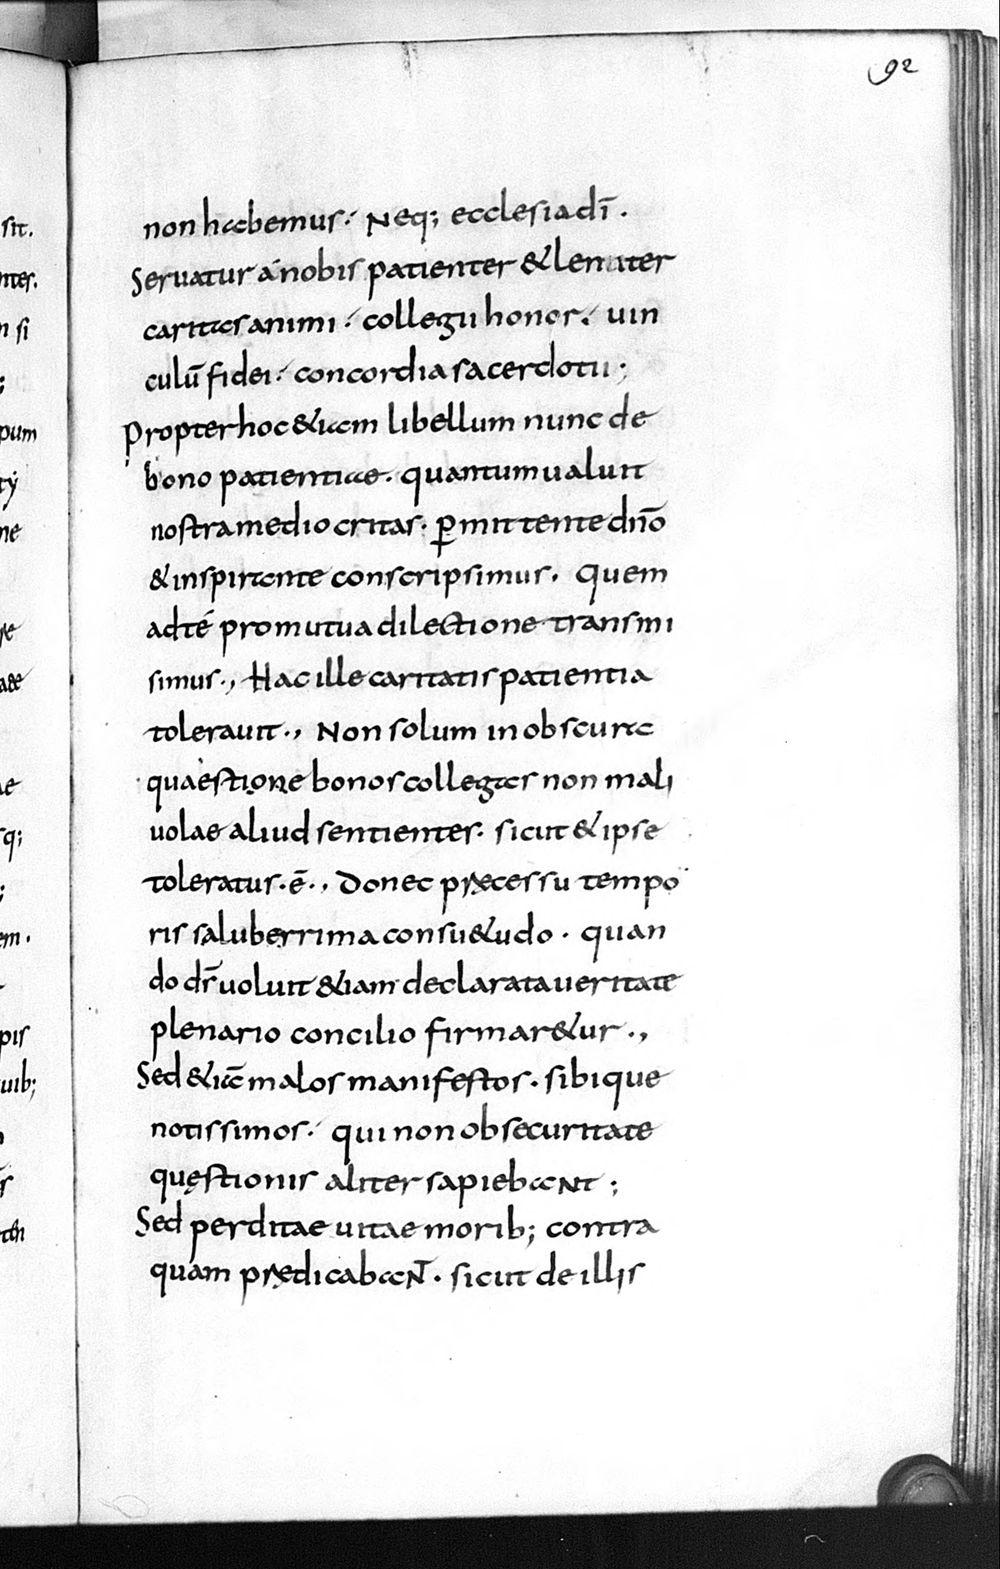 92
non habemus. Neq; ecclesia dī.
Seruatur a nobis patienter & leniter
caritas animi. collegii honor. uin
culū fidei. concordia sacerdotii;
Propter hoc &iam libellum nunc de
bono patientiae. quantum ualuit
nostra mediocritas. ꝑmittente dn̄o
& inspirante conscripsimus. Quem
ad té pro mutua dilectione transmi
simus., Hac ille caritatis patientia
tolerauit., Non solum in obscura
quaestione bonos collegas non mali
uolae aliud sentientes. sicut & ipse
toleratus. ē., Donec pręcessu tempo
ris saluberrima consu&udo. quan
do dr̄ uoluit &iam declarata ueritate
plenario concilio firmar&ur.,
Sed &iā malos manifestos. sibique
notissimos. qui non obsecuritate
quęstionis aliter sapiebant;
Sed perditae uitae morib; contra
quam prędicabant. sicut de illis
sit.
nter.
n si
;
pum
ty
ne
re
aee
ae
sq;
;
em.
pis
uib;